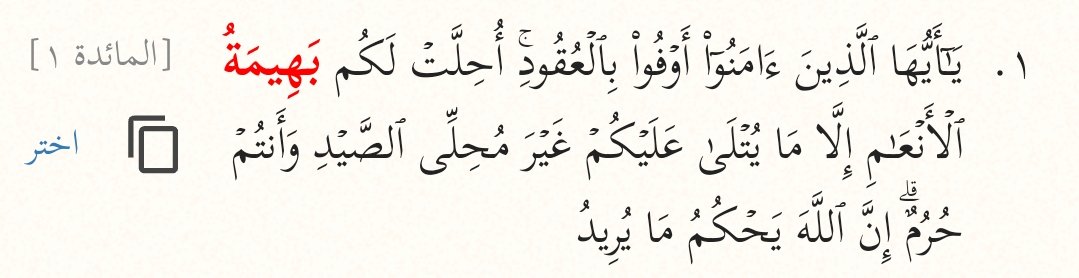 ١. يَـٰٓأَيُّهَا ٱلَّذِينَ ءَامَنُوٓا۟ أَوْفُوا۟ بِٱلْعُقُودِ ۚ أُحِلَّتْ لَكُم بَهِيمَةُ [المائدة ١]
ٱلْأَنْعَـٰمِ إِلَّا مَا يُتْلَىٰ عَلَيْكُمْ غَيْرَ مُحِلِّى ٱلصَّيْدِ وَأَنتُمْ اختر
حُرُمٌ ۗ إِنَّ ٱللَّهَ يَحْكُمُ مَا يُرِيدُ